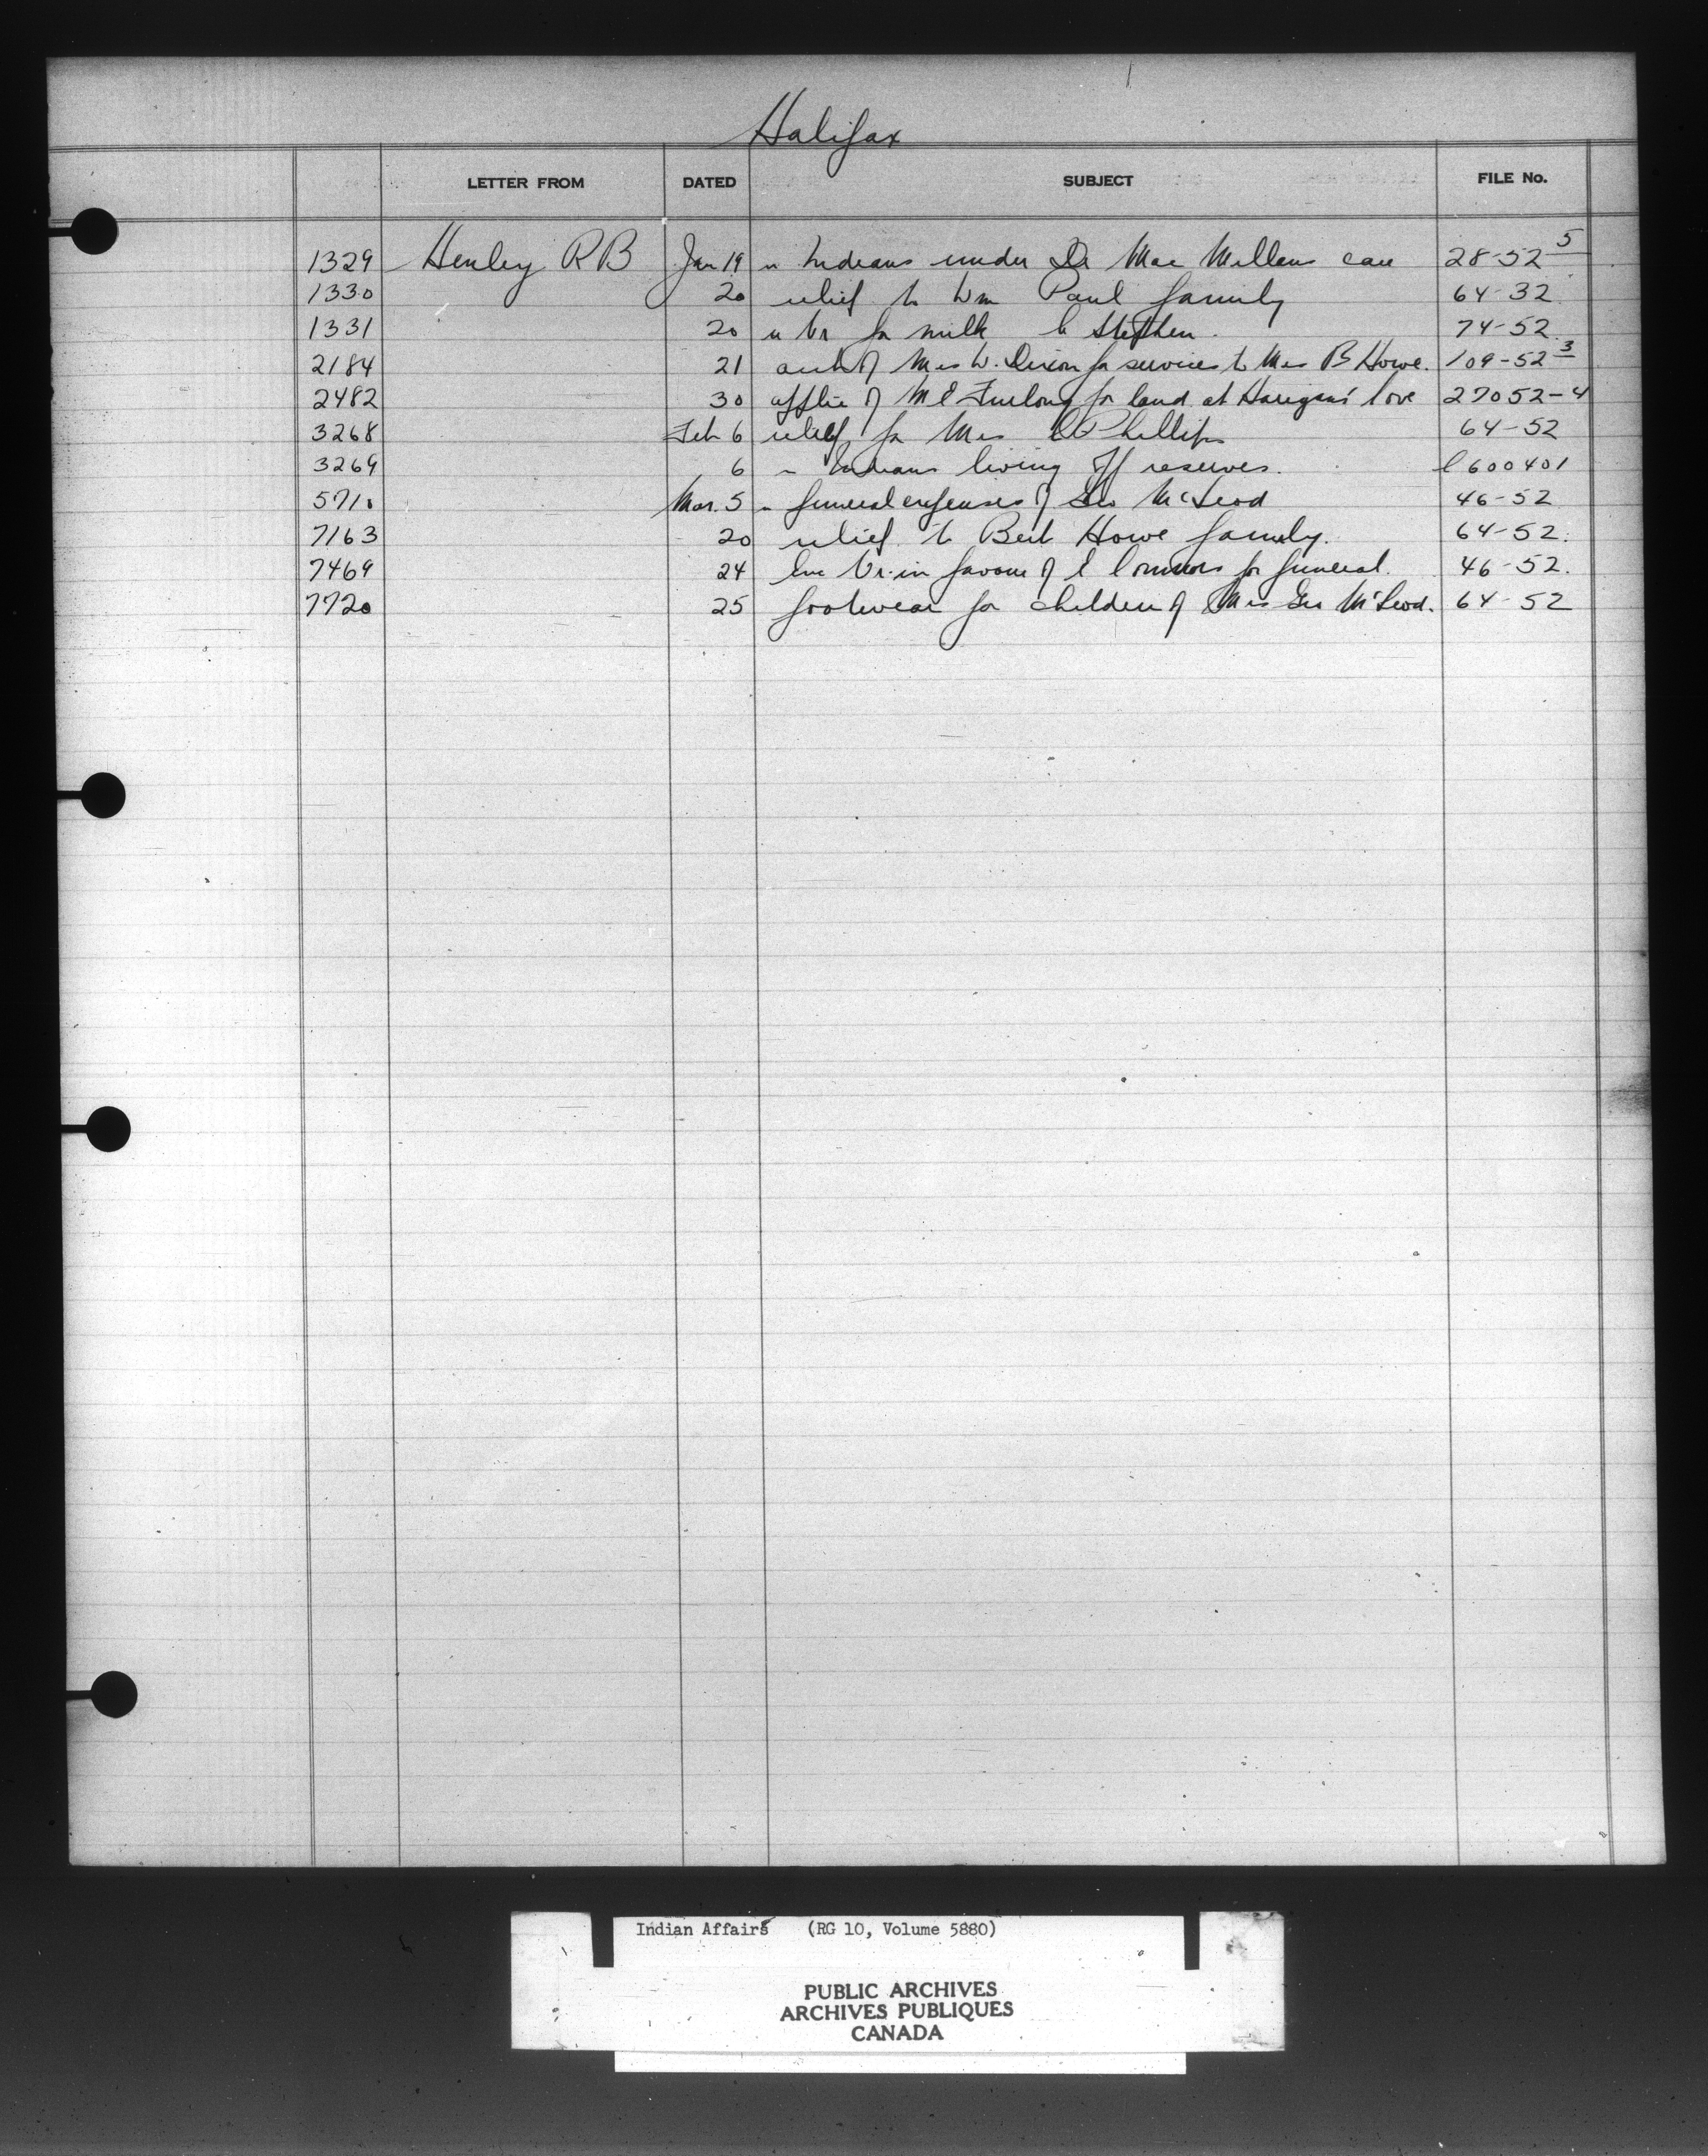 Halifax
LETTER FROM DATED SUBJECT FILE No.
1329 Henley R B Jan 19 " Indians under Dr Mac Millans care 28-52 5
1330 20 relief to Wm Paul family 64-32
1331 20 " Vr for milk to Stephen. 74-52
2184 21 acct of Mrs W. Dixon for services to Mrs B Howe. 109-52 3
2482 30 applic of M E Furlong for land at Harigans' Cove 27052-4
3268 Feb 6 relief for Mrs Phillips 64-52
3269 6 " Indians living off reserves. 600401
5710 Mar. 5 " funeral expenses of Geo McLeod 46-52
7163 20 relief to Bert Howe family. 64-52.
7469 24 Enc Vr. in favour of Connors for funeral. 46-52.
7720 25 footwear for children of Mrs Geo McLeod. 64-52
Indian Affairs (RG 10, Volume 5880)
PUBLIC ARCHIVES
ARCHIVES PUBLIQUES
CANADA